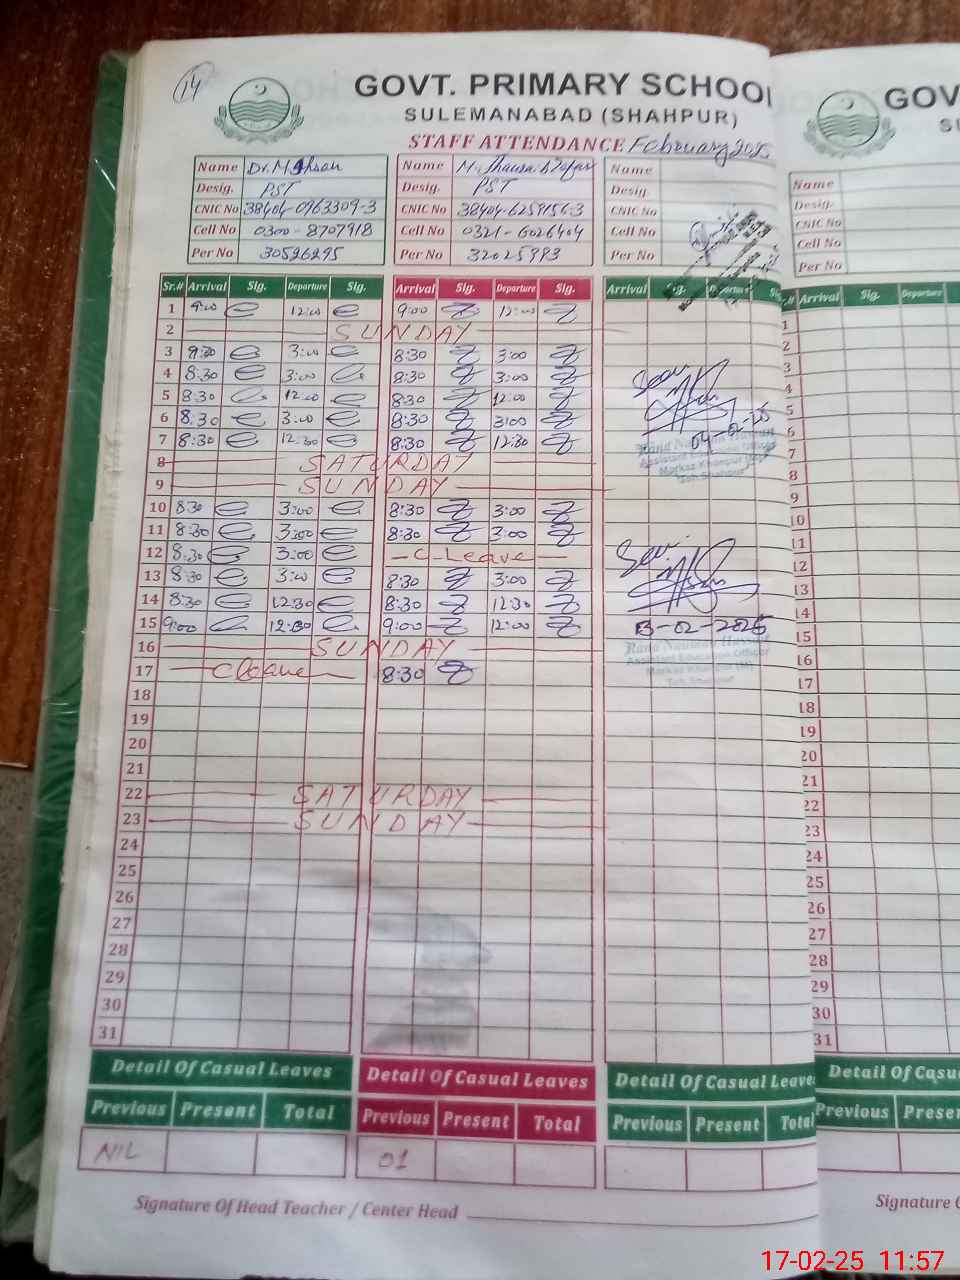 14
GOVT. PRIMARY SCHOOL
SULEMANABAD (SHAHPUR)
STAFF ATTENDANCE February 2025
Name Dr. M Ahsan Name Name
Desig. PST Desig. PST Desig.
CNIC No 38404-0963309-3 CNIC No 38404-6259156-3 CNIC No
Cell No 0300-8707918 Cell No 0321-6026404 Cell No
Per No 30526295 Per No 32025993 Per No
Sr.# Arrival Sig. Departure Sig. Arrival Sig. Departure Sig. Arrival Sig. Departure Sig.
1 9:00 12:00 9:00 12:00
2 SUNDAY
3 8:30 3:00 8:30 3:00
4 8:30 3:00 8:30 3:00
5 8:30 12:00 8:30 12:00
6 8:30 3:00 8:30 3:00
7 8:30 12:30 8:30 12:30
8 SATURDAY
9 SUNDAY
10 8:30 3:00 8:30 3:00
11 8:30 3:00 8:30 3:00
12 8:30 3:00 C-Leave
13 8:30 3:00 8:30 3:00
14 8:30 12:30 8:30 12:30
15 9:00 12:30 9:00 12:00
16 SUNDAY
17 C leave 8:30
18
19
20
21
22 SATURDAY
23 SUNDAY
24
25
26
27
28
29
30
31
Seen
04-02-25
Assistant Education Officer
Teh Shahpur
Seen
13-02-2025
Assistant Education Officer
Markaz Khanpur (M)
Teh Shahpur
Detail Of Casual Leaves Detail Of Casual Leaves Detail Of Casual Leave
Previous Present Total Previous Present Total Previous Present Total
NIL 01
Signature Of Head Teacher / Center Head
GOV
Name
Desig.
CNIC No
Cell No
Per No
Arrival Sig. Departure
1
2
3
4
5
6
7
8
9
10
11
12
13
14
15
16
17
18
19
20
21
22
23
24
25
26
27
28
29
30
31
Detail Of Casu
Previous Presen
Signature O
17-02-25 11:57